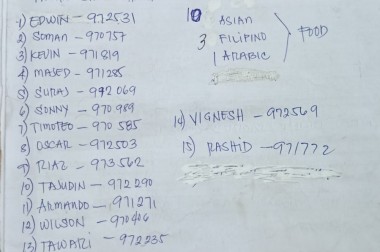 1) EDWIN - 972531
2) SOMAN - 970757
3) KEVIN - 971819
4) MASED - 971285
5) SURAJ - 992069
6) SONNY - 970989
7) TIMOTEO - 970585
8) OSCAR - 972503
9) RIAZ - 973562
10) TAJUDIN - 972290
11) ARMANDO - 971271
12) WILSON - 970406
13) TAWARI - 972235
10 ASIAN
3 FILIPINO
1 ARABIC
FOOD
14) VIGNESH - 972569
15) RASHID - 971772